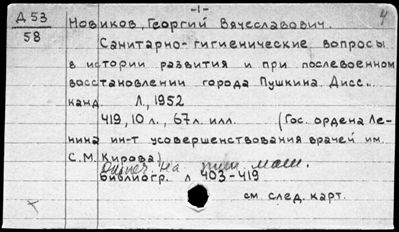 -1-
4
Д 53
58
Новиков, Георгий Вячеславович.
Санитарно-гигиенические вопросы
в истории развития и при послевоенном
восстановлении города Пушкина. Дисс...
канд. Л., 1952
419, 10 л., 67 л. илл. (Гос. ордена Ле-
нина ин-т усовершенствования врачей им.
С.М. Кирова)
На пиш. маш.
библиогр. л 403-419
см. след. карт.